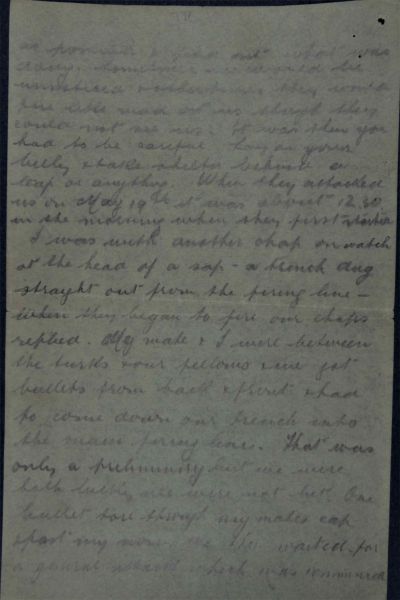 as possible & find out what was
doing. Sometimes we would be
unnoticed & other times they would
fire like mad at us though they
could not see us. It was then you
had to be careful. Lay on your
belly & take shelter behind a
leaf or anything. When they attacked
us on May 19th it was about 12.30
in the morning when they first started
I was with another chap on watch
at the head of a sap - a trench dug
straight out from the firing line -
when they began to fire our chaps
replied. My mate & I were between
the turks & our fellows & we got
bullets from back & front & had
to come down our trench into
the main firing line. That was
only a preliminary but we were
both lucky we were not hit. One
bullet tore through my mates cap
& past my we then waited for
a general attack which was commenced